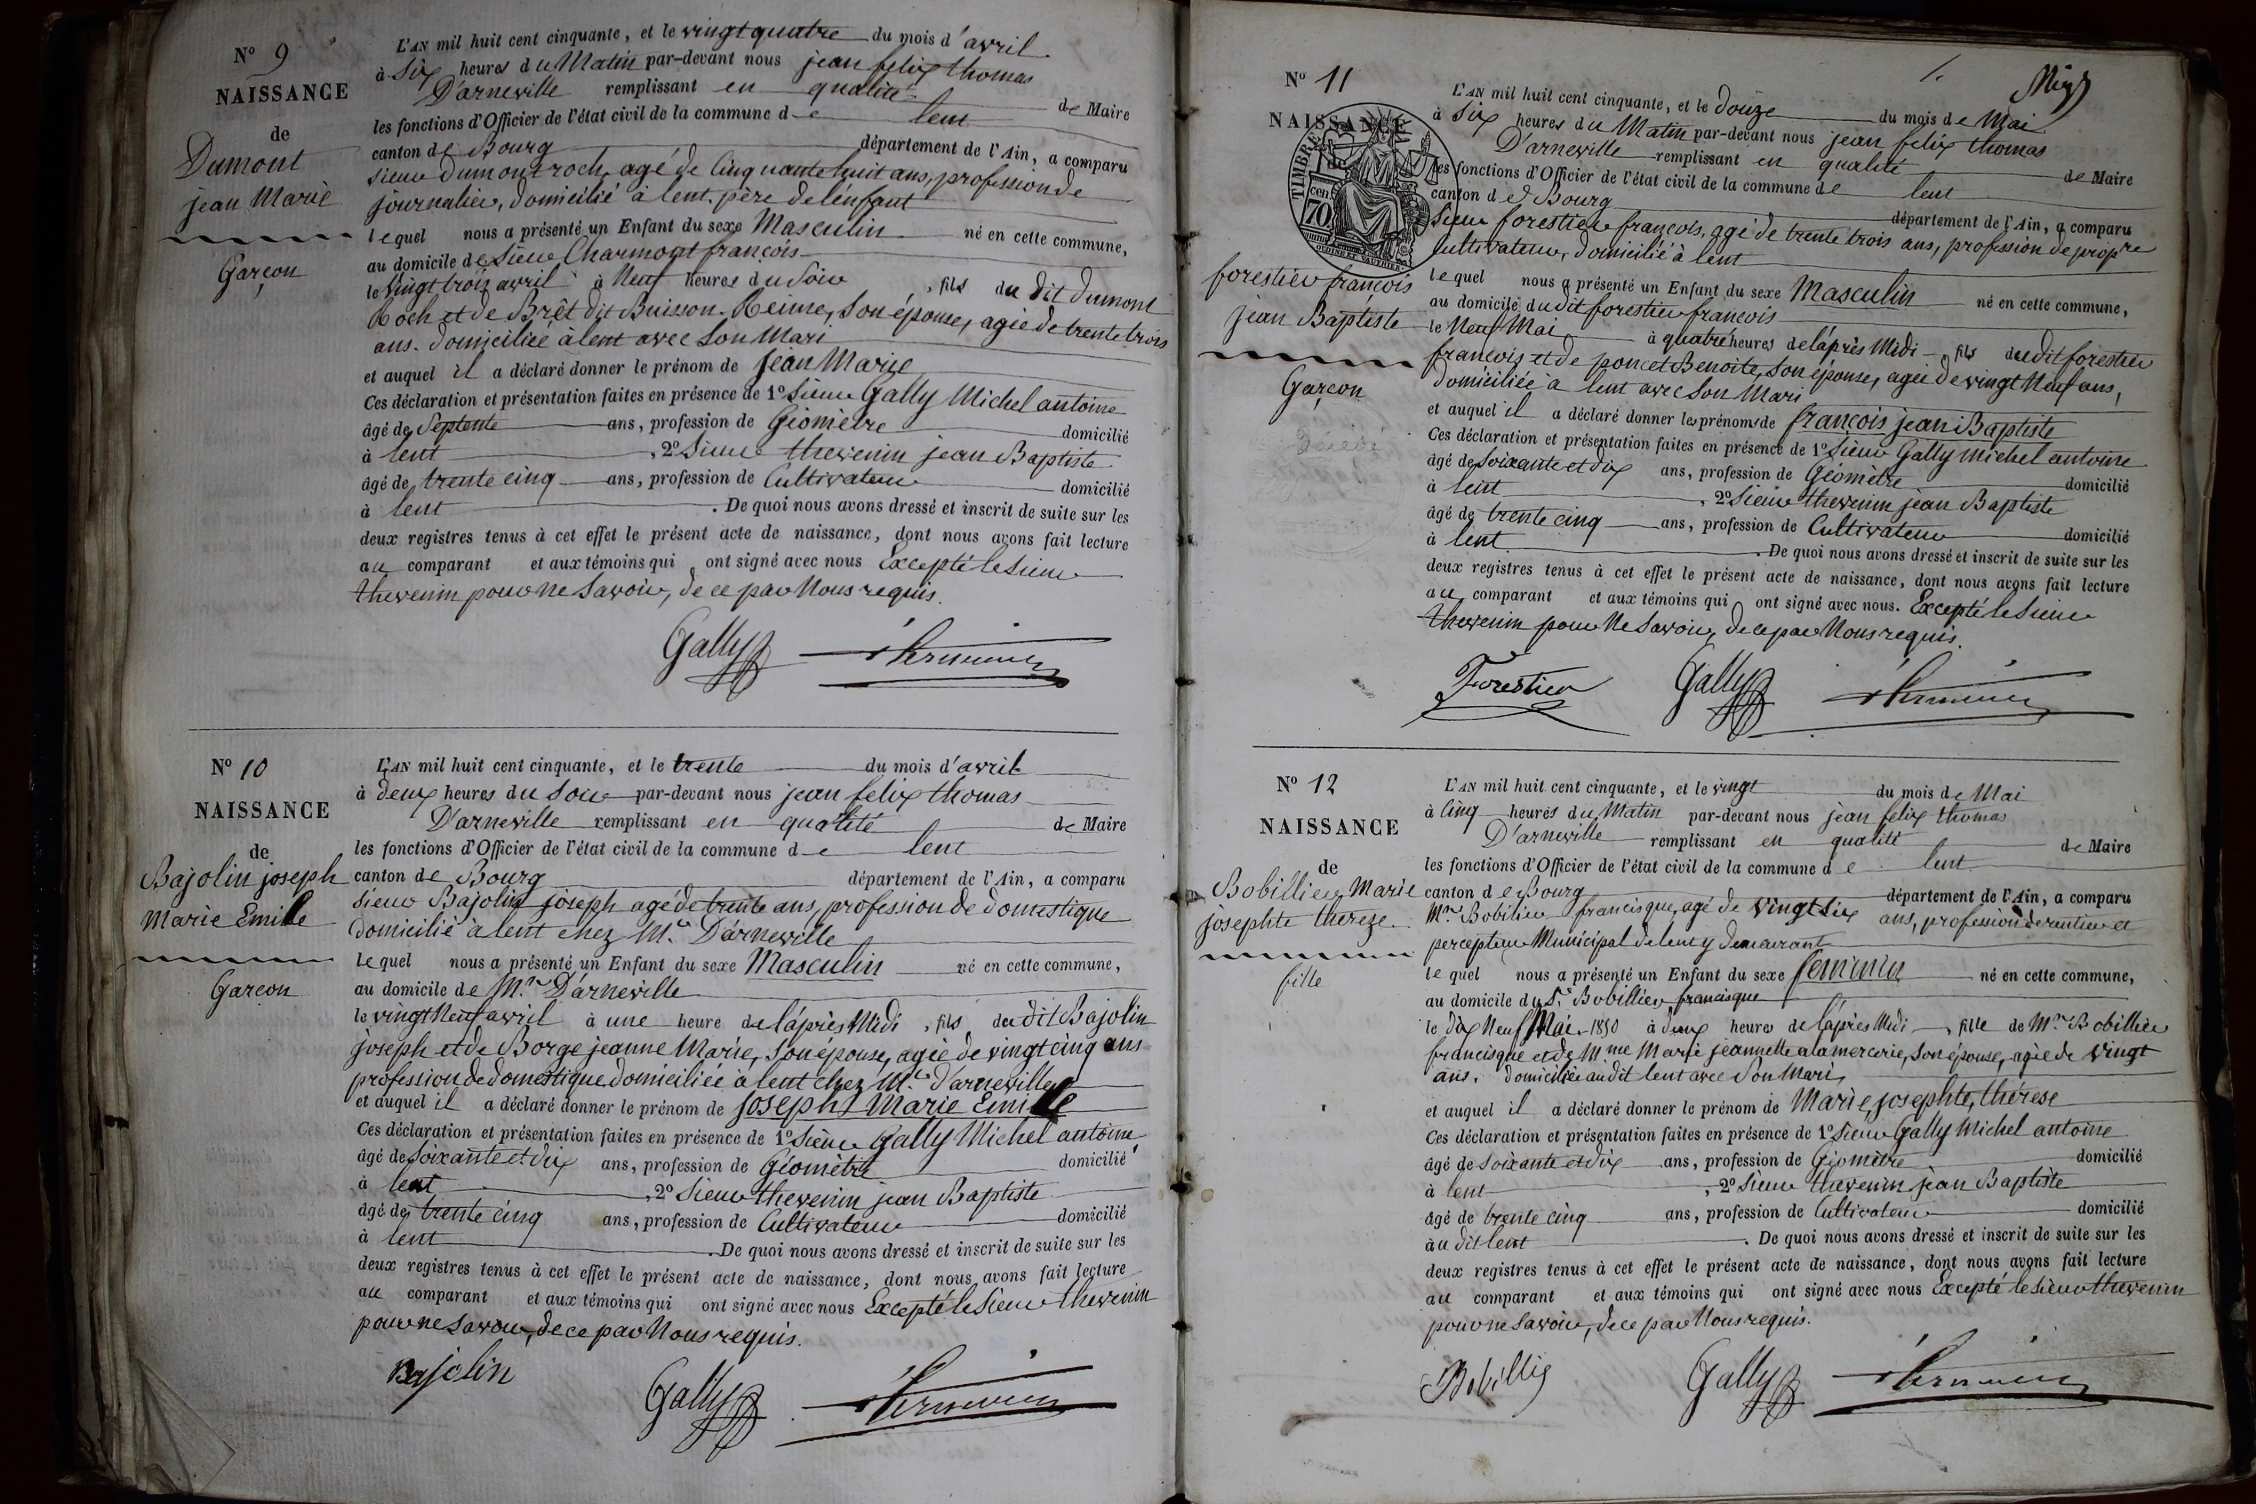 N° 9
NAISSANCE
de
Dumont
jean Marie
Garçon
L'AN mil huit cent cinquante, et le vingt quatre du mois d'avril
à Six heures du Matin par-devant nous jean felix thomas
D'arneville remplissant en qualité de Maire
les fonctions d'Officier de l'état civil de la commune de lent
canton de Bourg département de l'Ain, a comparu
sieur Dumont roch, agé de Cinquante huit ans, profession de
journalier, domicilié à lent. père de l'énfant
lequel nous a présenté un Enfant du sexe Masculin né en cette commune,
au domicile de Sieur Charmont françois
le Vingt trois avril à Neuf heures du Soir, fils du dit Dumont
Roch et de Brêt dit Buisson Reine, Son épouse, agée de trente trois
ans. domiciliée à lent avec Son Mari
et auquel il a déclaré donner le prénom de Jean Marie
Ces déclaration et présentation faites en présence de 1° Sieur Gally Michel antoine
âgé de Septente ans, profession de Géomètre domicilié
à lent, 2° Sieur thevenin jean Baptiste
âgé de trente cinq ans, profession de Cultivateur domicilié
à lent. De quoi nous avons dressé et inscrit de suite sur les
deux registres tenus à cet effet le présent acte de naissance, dont nous avons fait lecture
au comparant et aux témoins qui ont signé avec nous Excepté le Sieur
thevenin pour Ne Savoir, de ce par Nous requis.
Gally
N° 10
NAISSANCE
de
Bajolin joseph
Marie Emile
Garçon
L'AN mil huit cent cinquante, et le trente du mois d'avril
à deux heures du Soir par-devant nous jean felix thomas
D'arneville remplissant en qualité de Maire
les fonctions d'Officier de l'état civil de la commune de lent
canton de Bourg département de l'Ain, a comparu
sieur Bajolin joseph agé de trente ans, profession de domestique
domicilié à lent chez Mr D'arneville
lequel nous a présenté un Enfant du sexe Masculin né en cette commune,
au domicile de Mr D'arneville
le vingt Neuf avril à une heure de l'après Midi, fils du dit Bajolin
joseph et de Borge jeanne Marie, Son épouse, agée de vingt cinq ans
profession de domestique domiciliée à lent chez Mr D'arneville
et auquel il a déclaré donner le prénom de Joseph Marie Emile
Ces déclaration et présentation faites en présence de 1° Sieur Gally Michel antoine
âgé de Soixante et dix ans, profession de Géomètre domicilié
à lent, 2° Sieur thevenin jean Baptiste
âgé de trente cinq ans, profession de Cultivateur domicilié
à lent. De quoi nous avons dressé et inscrit de suite sur les
deux registres tenus à cet effet le présent acte de naissance, dont nous avons fait lecture
au comparant et aux témoins qui ont signé avec nous Excepté le Sieur thevenin
pour ne Savoir, de ce par Nous requis.
Bajolin Gally
N° 11
NAISSANCE
TIMBRE
70
forestier françois
jean Baptiste
Garçon
L'AN mil huit cent cinquante, et le douze du mois de Mai
à Six heures du Matin par-devant nous jean felix thomas
D'arneville remplissant en qualité de Maire
les fonctions d'Officier de l'état civil de la commune de lent
canton de Bourg département de l'Ain, a comparu
Sieur forestier françois, agé de trente trois ans, profession de propre
Cultivateur, domicilié à lent
lequel nous a présenté un Enfant du sexe Masculin né en cette commune,
au domicile du dit forestier françois
le Neuf Mai à quatre heures de l'après Midi, fils du dit forestier
françois et de poncet Benoite, Son épouse, agée de vingt Neuf ans,
domiciliée à lent avec Son Mari
et auquel il a déclaré donner les prénoms de françois jean Baptiste
Ces déclaration et présentation faites en présence de 1° Sieur Gally Michel antoine
âgé de Soixante et dix ans, profession de Géomètre domicilié
à lent, 2° Sieur thevenin jean Baptiste
âgé de trente cinq ans, profession de Cultivateur domicilié
à lent. De quoi nous avons dressé et inscrit de suite sur les
deux registres tenus à cet effet le présent acte de naissance, dont nous avons fait lecture
au comparant et aux témoins qui ont signé avec nous. Excepté le Sieur
thevenin pour Ne Savoir, de ce par Nous requis.
Forestier Gally
N° 12
NAISSANCE
de
Bobillier Marie
josephte thereze
fille
L'AN mil huit cent cinquante, et le vingt du mois de Mai
à Cinq heures du Matin par-devant nous jean felix thomas
D'arneville remplissant en qualité de Maire
les fonctions d'Officier de l'état civil de la commune de lent
canton de Bourg département de l'Ain, a comparu
Mr Bobilier francisque, agé de Vingt Six ans, profession de rentier et
percepteur Municipal de lent y demeurant
lequel nous a présenté un Enfant du sexe feminin né en cette commune,
au domicile du Sr Bobillier francisque
le Dix Neuf Mai 1850 à deux heures de l'après Midi, fille de Mr Bobillier
francisque et de Mme Marie jeannette alamercerie, Son épouse, agée de Vingt
ans. domiciliée au dit lent avec Son Mari,
et auquel il a déclaré donner le prénom de Marie, josephte, thérese
Ces déclaration et présentation faites en présence de 1° Sieur Gally Michel antoine
âgé de Soixante et dix ans, profession de Géomètre domicilié
à lent, 2° Sieur thevenin jean Baptiste
âgé de trente cinq ans, profession de Cultivateur domicilié
au dit lent. De quoi nous avons dressé et inscrit de suite sur les
deux registres tenus à cet effet le présent acte de naissance, dont nous avons fait lecture
au comparant et aux témoins qui ont signé avec nous Excepté le Sieur thevenin
pour ne Savoir, de ce par Nous requis.
Gally